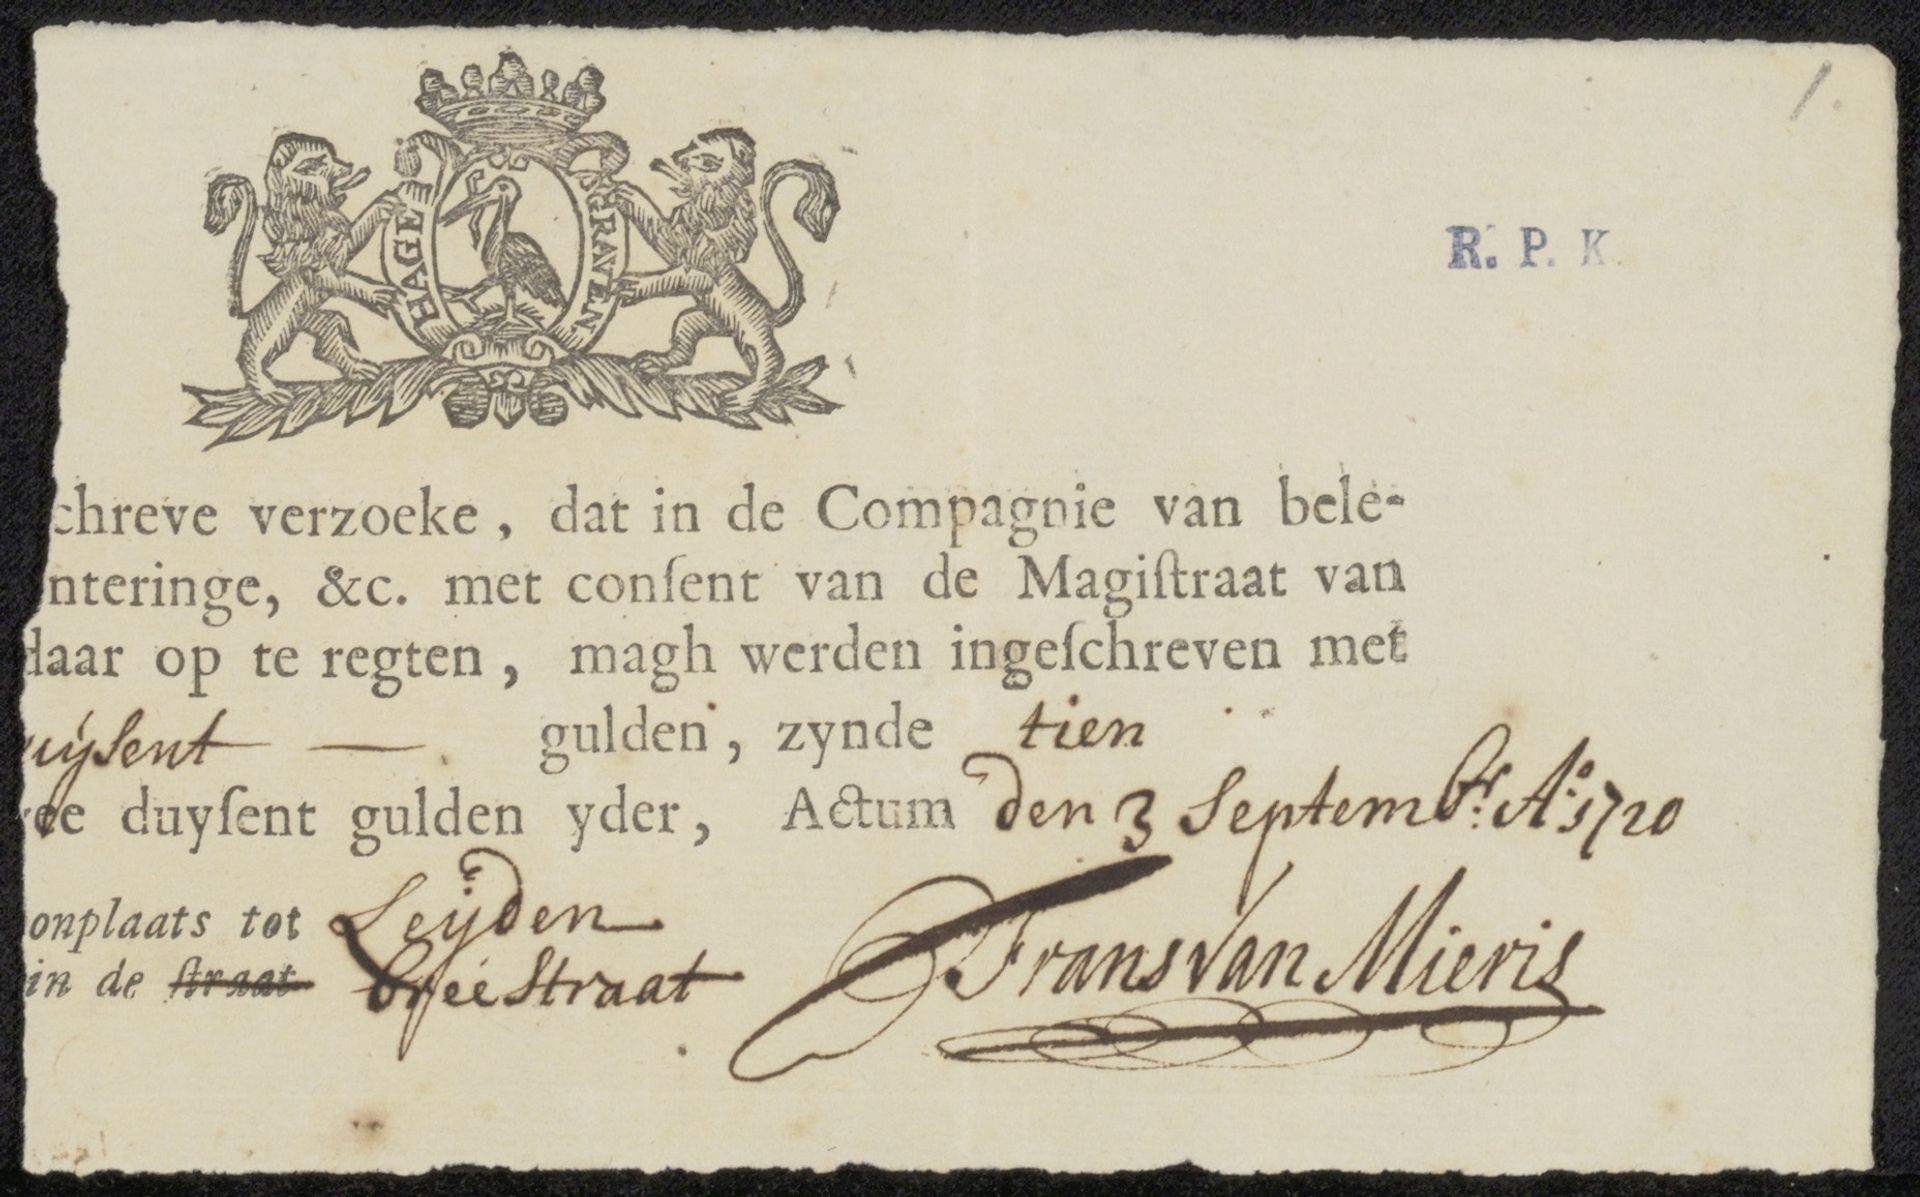 1.
HAGE
GRAVEN
R. P. K.
chreve verzoeke, dat in de Compagnie van bele-
nteringe, &c. met conſent van de Magiſtraat van
daar op te regten, magh werden ingeſchreven met
uijsent — gulden, zynde tien
ee duyſent gulden yder, Actum den 3 Septembr. Ao: 1720
onplaats tot Leijden
in de ſtraat breé Straat
Frans van Mieris